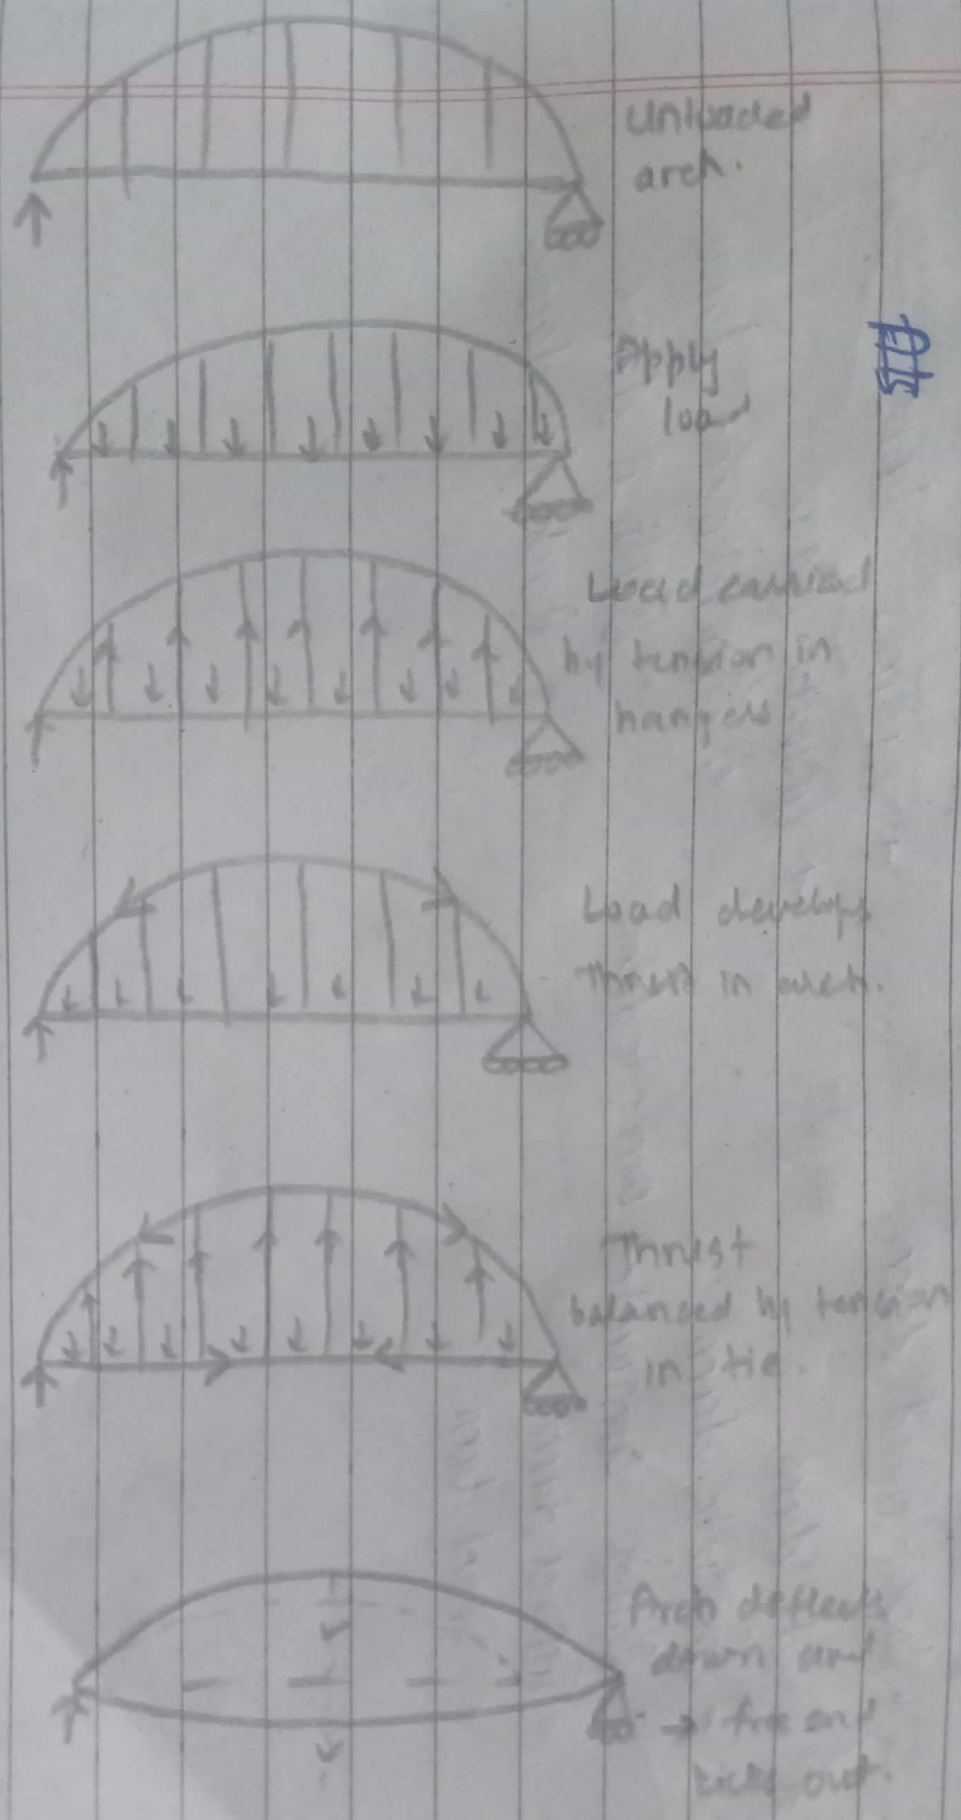 Unloaded
arch.
Apply
load
Load carried
by tension in
hangers
Load develops
Thrust in arch.
Thrust
balanced by tension
in tie.
Arch deflects
down and
→ free end
kicks out.